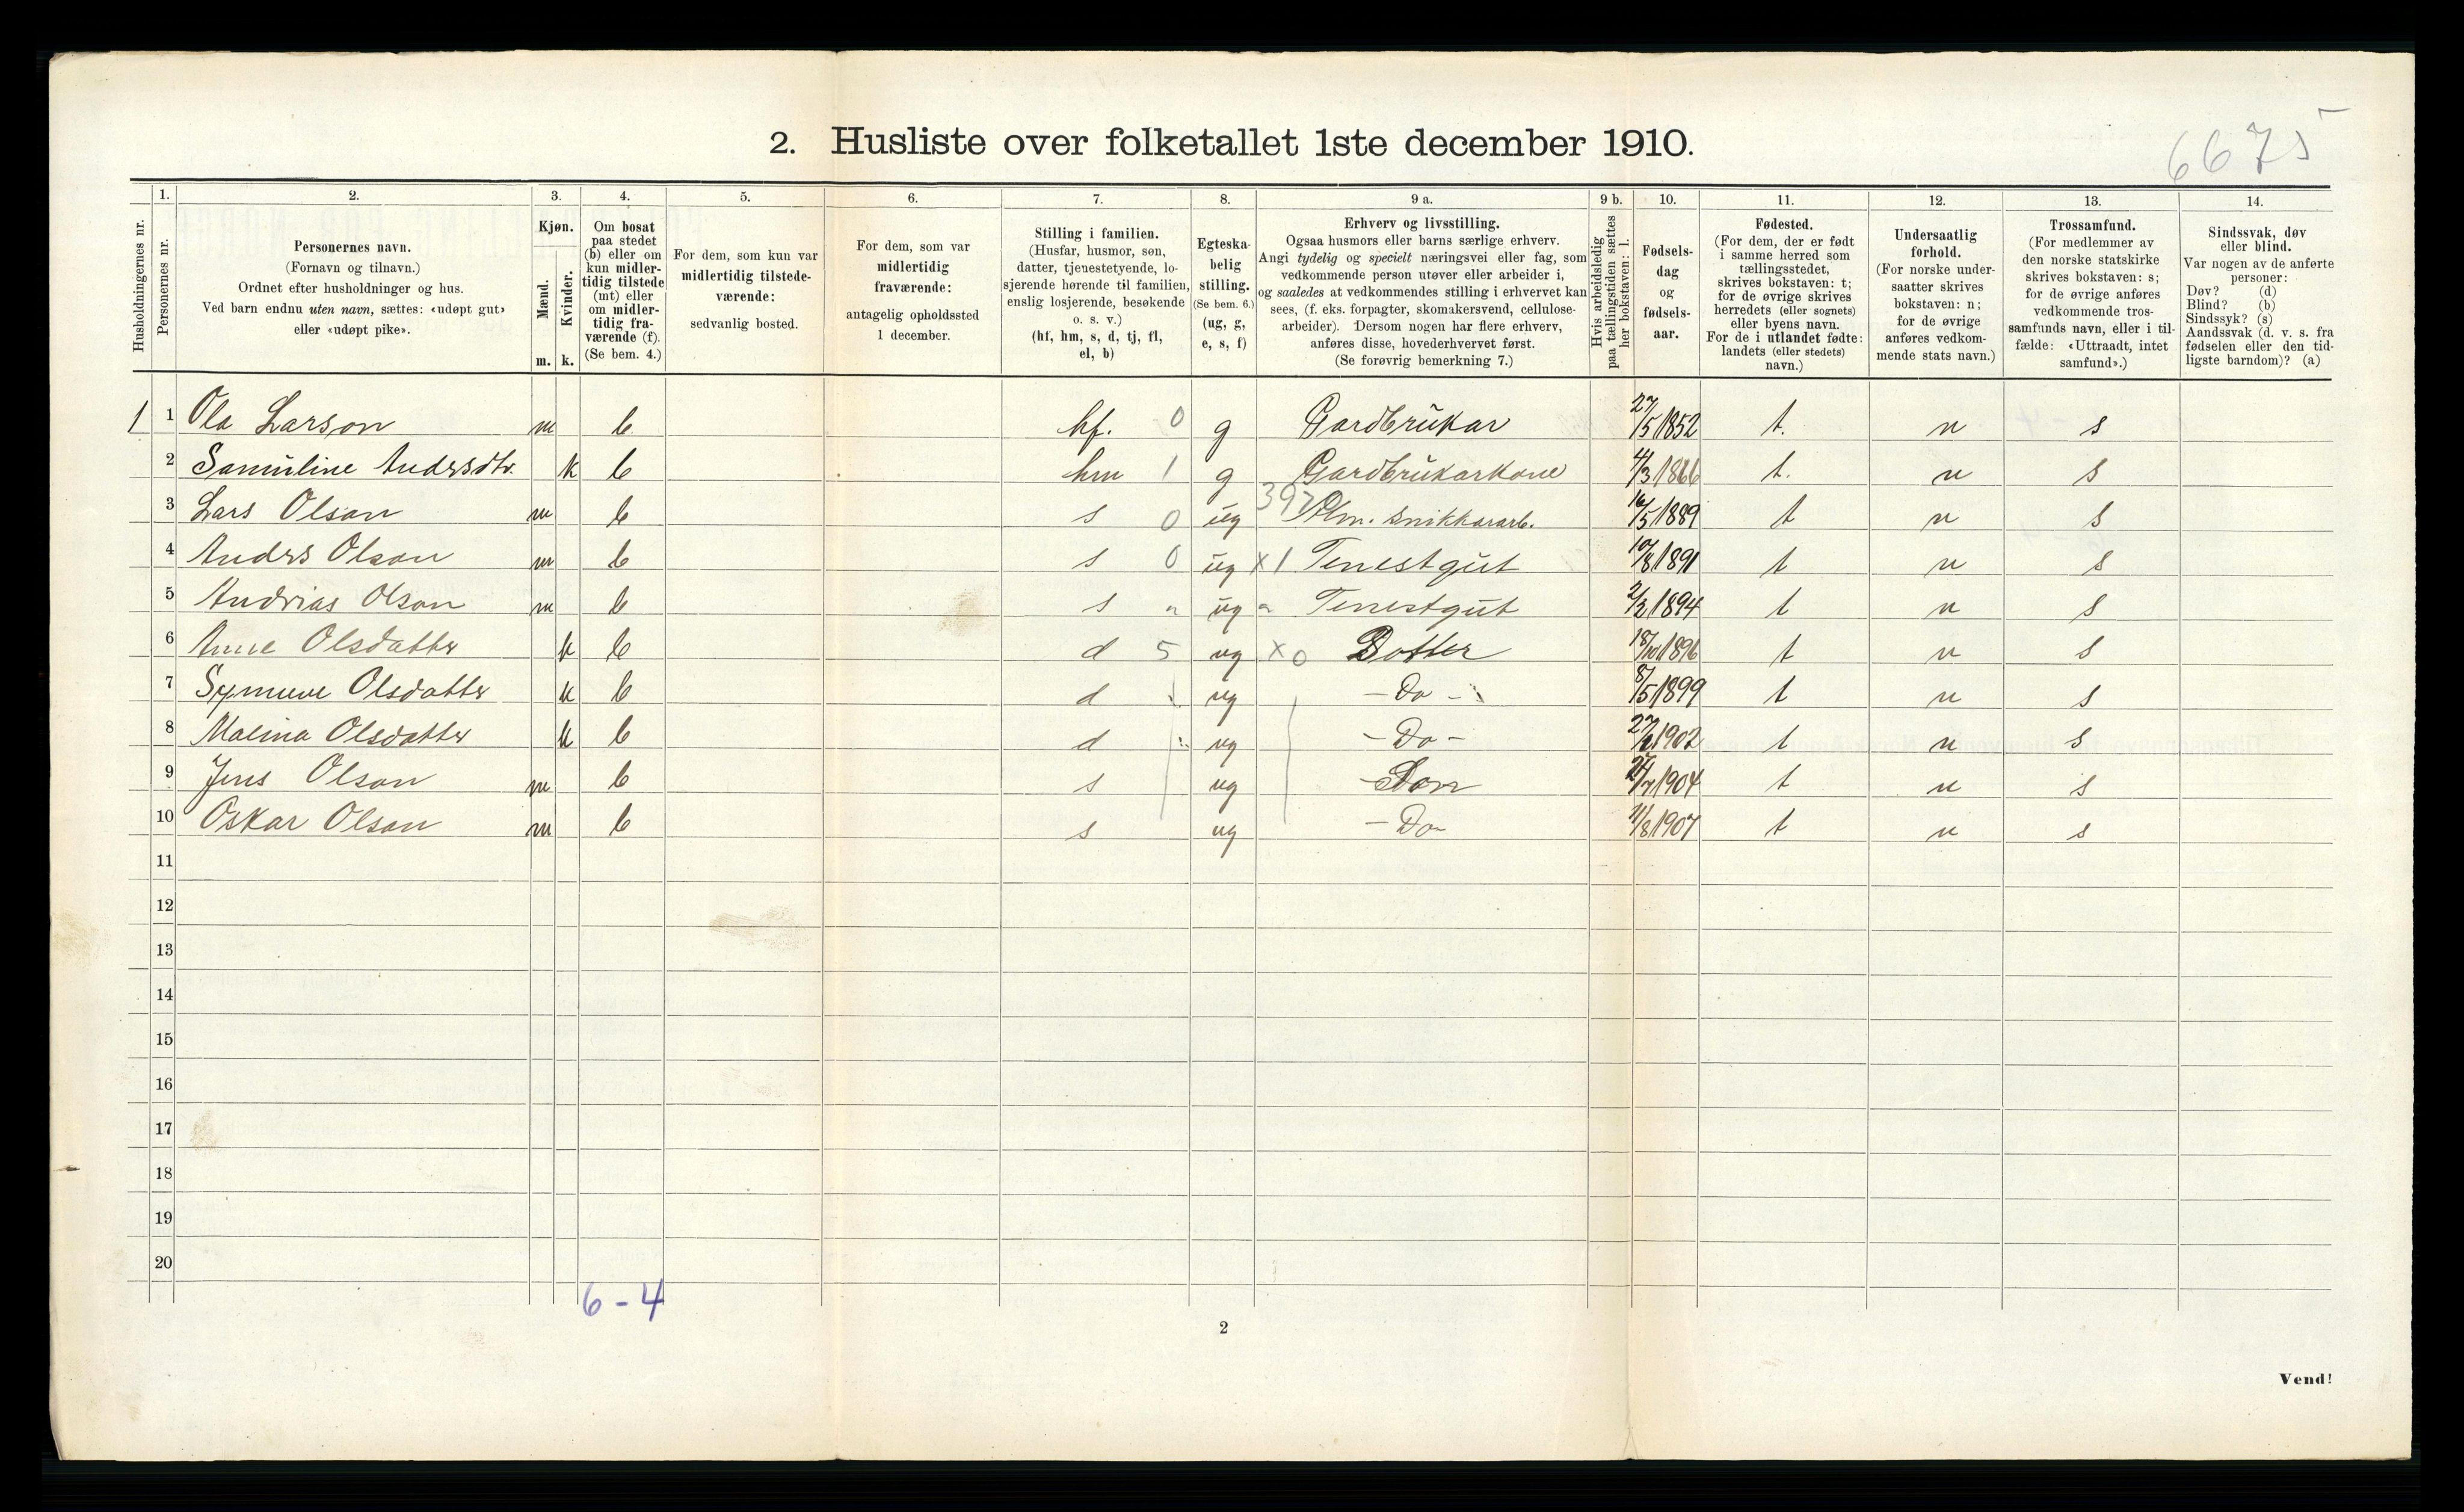 2. Husliste over folketallet 1ste december 1910.
6675
Husholdningernes nr.
1.
Personernes nr.
2.
Personernes navn.
(Fornavn og tilnavn.)
Ordnet efter husholdninger og hus.
Ved barn endnu uten navn, sættes: «udøpt gut»
eller «udøpt pike».
3.
Kjøn.
Mænd.
Kvinder.
m. k.
4.
Om bosat
paa stedet
(b) eller om
kun midler-
tidig tilstede
(mt) eller
om midler-
tidig fra-
værende (f).
(Se bem. 4.)
5.
For dem, som kun var
midlertidig tilstede-
værende:
sedvanlig bosted.
6.
For dem, som var
midlertidig
fraværende:
antagelig opholdssted
1 december.
7.
Stilling i familien.
(Husfar, husmor, søn,
datter, tjenestetyende, lo-
sjerende hørende til familien,
enslig losjerende, besøkende
o. s. v.)
(hf, hm, s, d, tj, fl,
el, b)
8.
Egteska-
belig
stilling.
(Se bem. 6.)
(ug, g,
e, s, f)
9 a.
Erhverv og livsstilling.
Ogsaa husmors eller barns særlige erhverv.
Angi tydelig og specielt næringsvei eller fag, som
vedkommende person utøver eller arbeider i,
og saaledes at vedkommendes stilling i erhvervet kan
sees, (f. eks. forpagter, skomakersvend, cellulose-
arbeider). Dersom nogen har flere erhverv,
anføres disse, hovederhvervet først.
(Se forøvrig bemerkning 7.)
9 b.
Hvis arbeidsledig
paa tællingstiden sættes
her bokstaven: l.
10.
Fødsels-
dag
og
fødsels-
aar.
11.
Fødested.
(For dem, der er født
i samme herred som
tællingsstedet,
skrives bokstaven: t;
for de øvrige skrives
herredets (eller sognets)
eller byens navn.
For de i utlandet fødte:
landets (eller stedets)
navn.)
12.
Undersaatlig
forhold.
(For norske under-
saatter skrives
bokstaven: n;
for de øvrige
anføres vedkom-
mende stats navn.)
13.
Trossamfund.
(For medlemmer av
den norske statskirke
skrives bokstaven: s;
for de øvrige anføres
vedkommende tros-
samfunds navn, eller i til-
fælde: «Uttraadt, intet
samfund».)
14.
Sindssvak, døv
eller blind.
Var nogen av de anførte
personer:
Døv? (d)
Blind? (b)
Sindssyk? (s)
Aandssvak (d. v. s. fra
fødselen eller den tid-
ligste barndom)? (a)
1 1 Ola Larson m b hf. 0 g Gardbrukar 27/5 1852 t. n s
2 Samuline Andrsdtr. k b hm 1 g Gardbrukarkone 4/3 1866 t. n s
3 Lars Olson m b s 0 ug Alm. snikkararb. 16/5 1889 t n s
4 Andrs Olson m b s 0 ug x1 Tenestgut 10/8 1891 t n s
5 Andrias Olson m b s " ug " Tenestgut 2/2 1894 t n s
6 Anne Olsdatter k b d 5 ug x0 Dotter 18/10 1896 t n s
7 Synneve Olsdatter k b d ug - Do - 8/5 1899 t n s
8 Malina Olsdatter k b d ug - Do - 1902 t n s
9 Jens Olson m b s ug Son 1904 t n s
10 Oskar Olson m b s ug - Do - 11/8 1907 t n s
11
12
13
14
15
16
17
18
19
20
6 - 4
2
Vend!